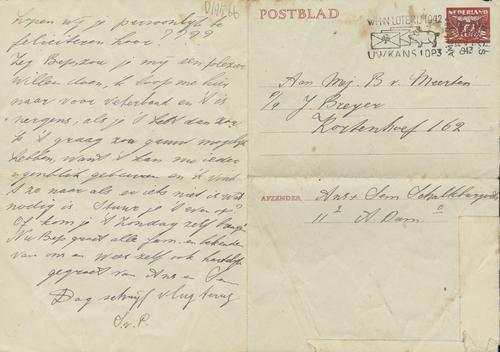 D1N5 66
komen wij je persoonlijk te
feliciteren hoor????
Zeg Bep zou je mij een plezier
willen doen, ik loop me hier
naar voor veterband en 't is
nergens, als je 't hebt dan zou
ik 't graag zou gauw mogelijk
hebben, want 't kan me ieder
oogenblik gebeuren en ik vind
't zo naar als er iets niet is wat
nodig is. Stuur je 't even op?
Of kom je 't Zondag zelf
Nu Bep groet alle fam. en bekenden
van ons en wees zelf ook hartelijk
gegroet van Ans en Sem
Dag schrijf vlug terug
S.v.P.
POSTBLAD
NEDERLAND
WHN LOTERIJ 1942
UW KANS 1 OP 3
1942
Aan Mej. B v. Meerten
p/a J. Breyer
Kortenhoef 162
AFZENDER
Ans + Sem
A.Dam